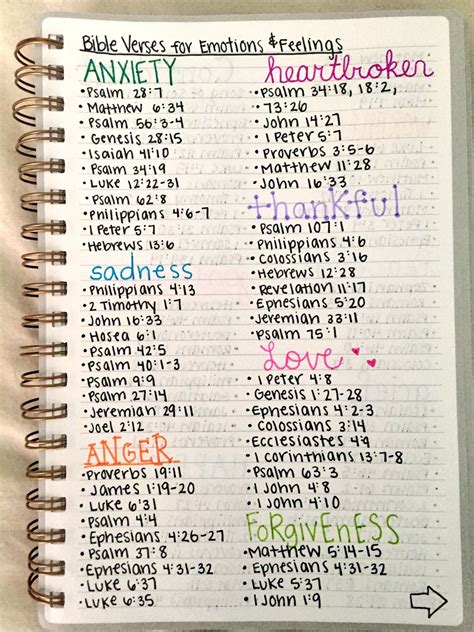 Bible Verses for Emotions & Feelings
ANXIETY
• Psalm 28:7
• Matthew 6:34
• Psalm 56:3-4
• Genesis 28:15
• Isaiah 41:10
• Psalm 34:19
• Luke 12:22-31
• Psalm 62:8
• Philippians 4:6-7
• 1 Peter 5:7
• Hebrews 13:6
sadness
• Philippians 4:13
• 2 Timothy 1:7
• John 16:33
• Hosea 6:1
• Psalm 42:5
• Psalm 40:1-3
• Psalm 9:9
• Psalm 27:14
• Jeremiah 29:11
• Joel 2:12
ANGER
• Proverbs 19:11
• James 1:19-20
• Luke 6:31
• Psalm 4:4
• Ephesians 4:26-27
• Psalm 37:8
• Ephesians 4:31-32
• Luke 6:37
• Luke 6:35
heartbroken
• Psalm 34:18, 18:2,
• 73:26
• John 14:27
• 1 Peter 5:7
• Proverbs 3:5-6
• Matthew 11:28
• John 16:33
thankful
• Psalm 107:1
• Philippians 4:6
• Colossians 3:16
• Hebrews 12:28
• Revelation 11:17
• Ephesians 5:20
• Jeremiah 33:11
• Psalm 75:1
Love
• 1 Peter 4:8
• Genesis 1:27-28
• Ephesians 4:2-3
• Colossians 3:14
• Ecclesiastes 4:9
• 1 Corinthians 13:7-8
• Psalm 63:3
• 1 John 4:8
• 1 John 4:10
FORGIVENESS
• Matthew 5:14-15
• Ephesians 4:31-32
• Luke 6:37
• 1 John 1:9